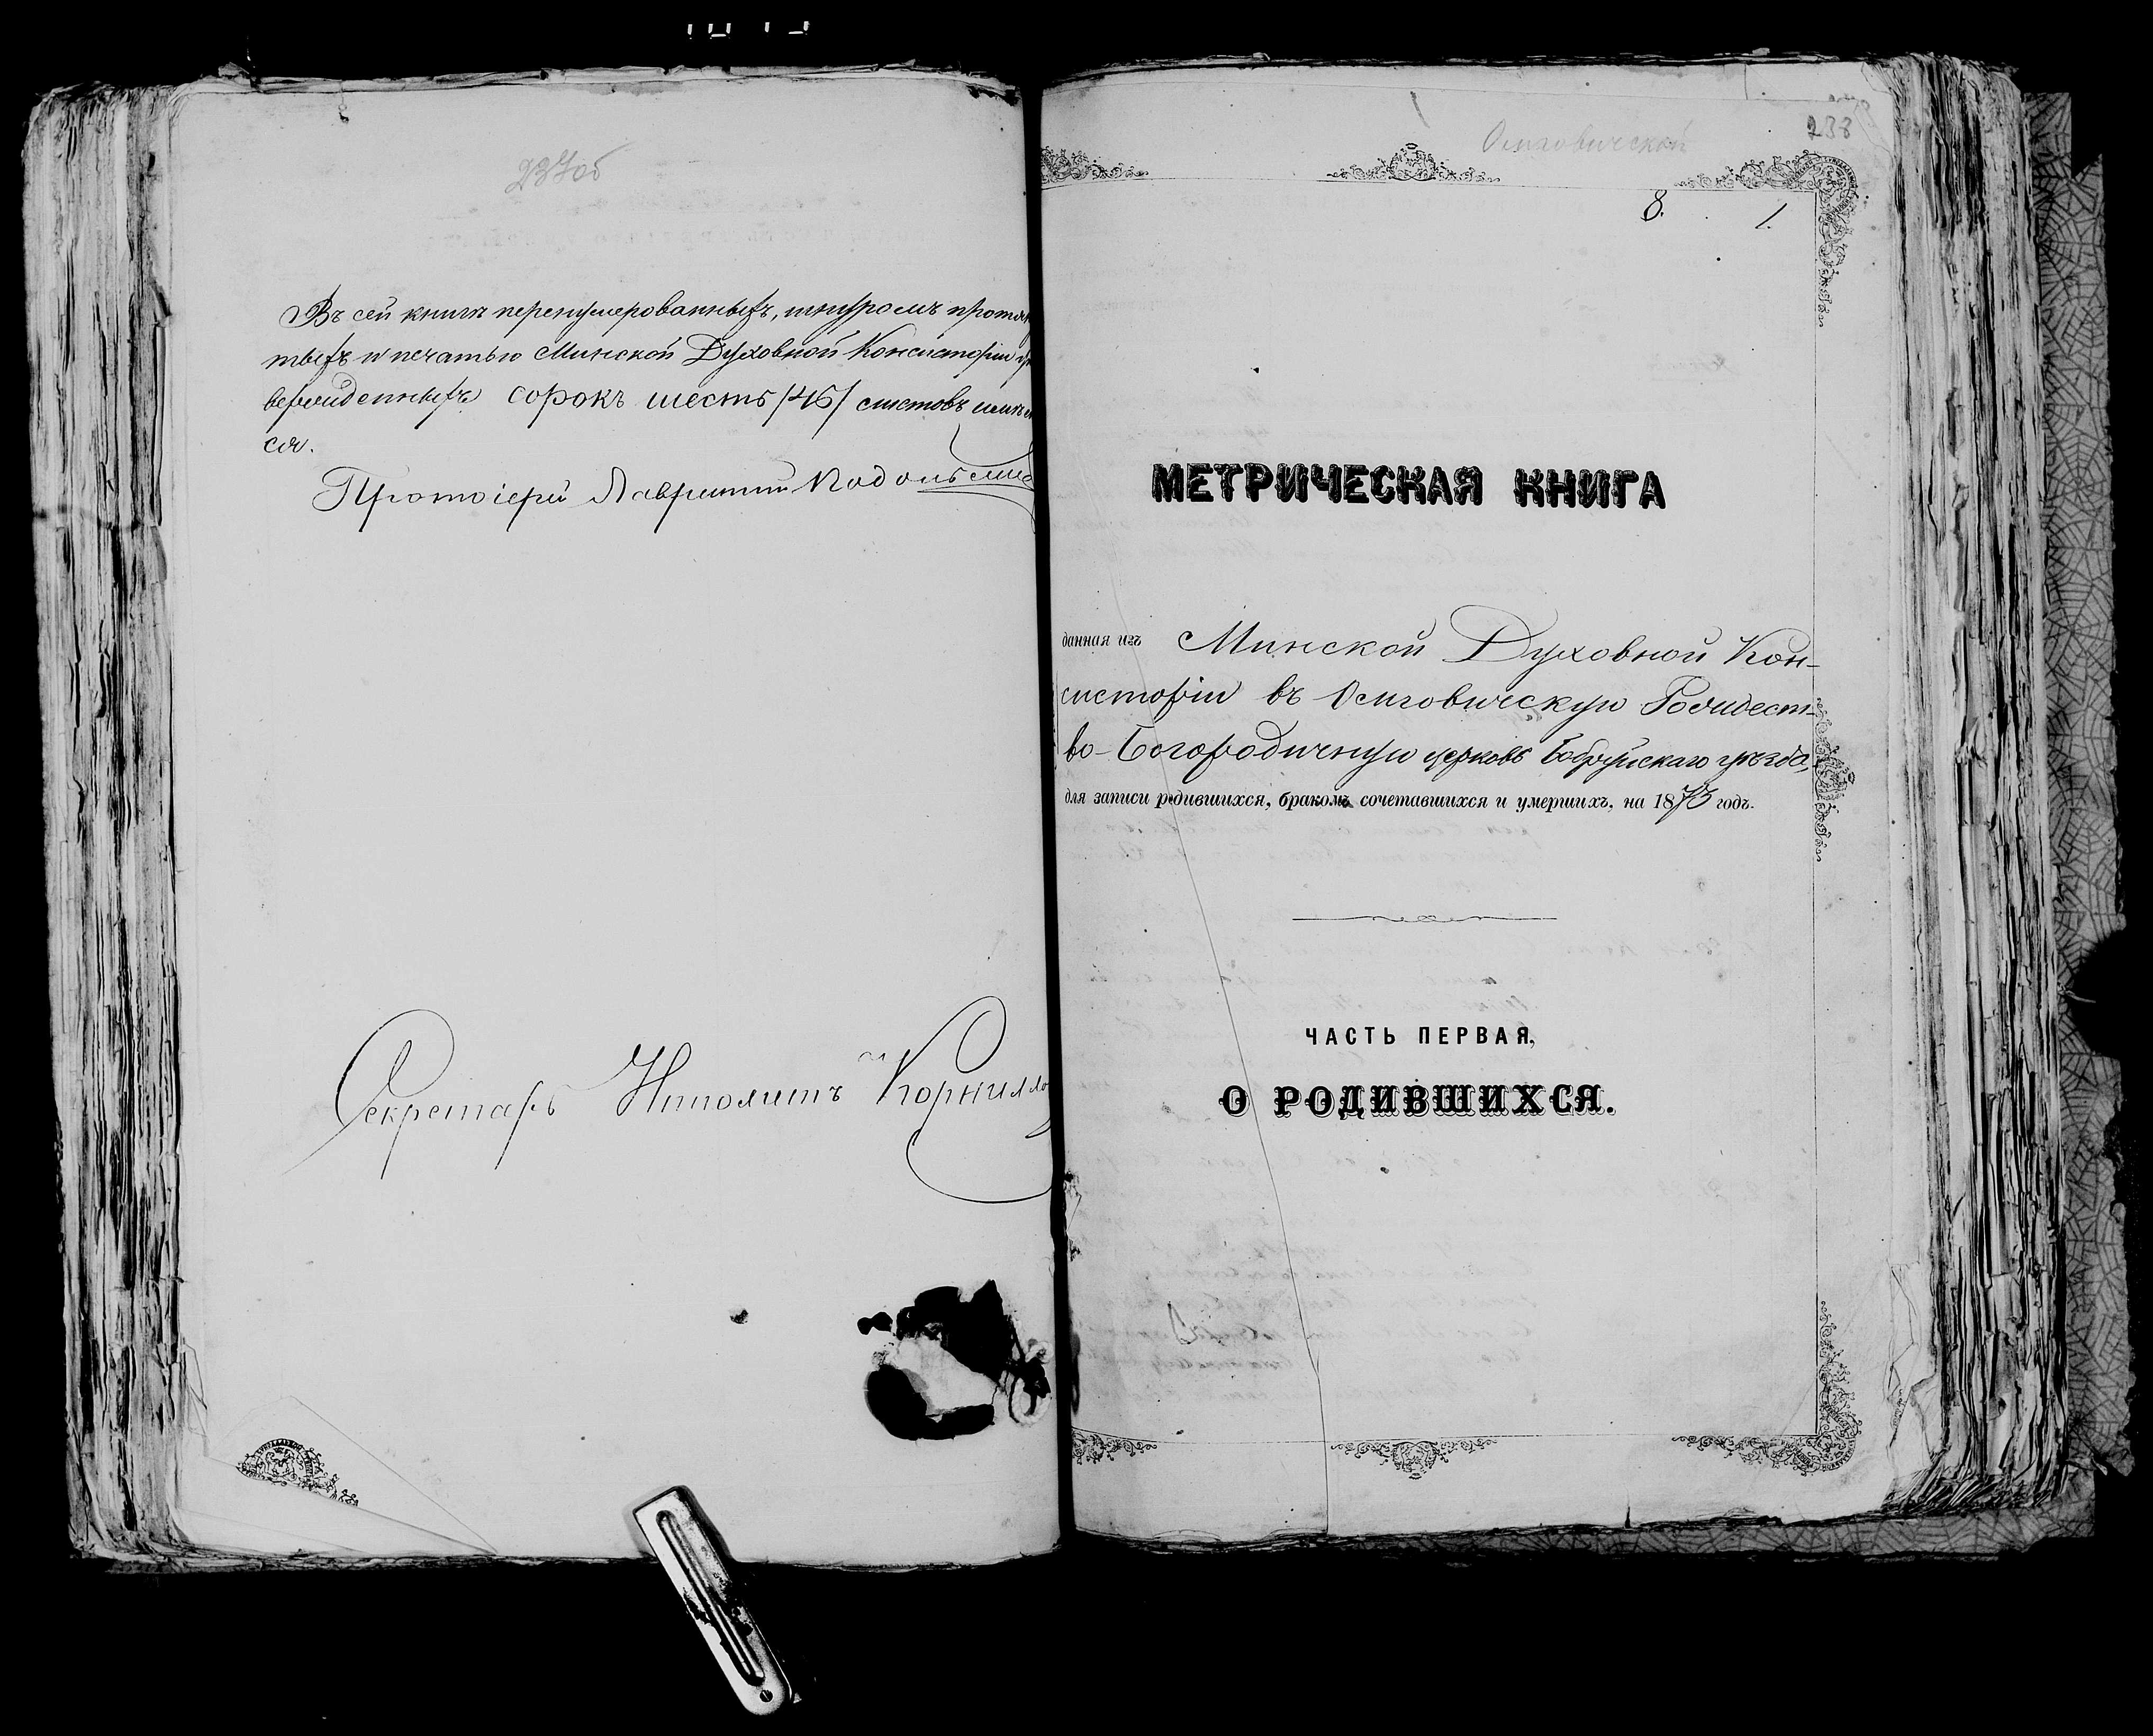 237об
Въ сей книгѣ перенумерованныхъ, шнуромъ протяну
тыхъ и печатью Минской Духовной Консисторіи ут
вержденныхъ сорокъ шесть /46/ листовъ имѣет
ся.
Протоіерей Лаврентій Подольскій
Секретарь Ипполитъ Корнилло
Осиговической
238
8. 1.
МЕТРИЧЕСКАЯ КНИГА
данная изъ Минской Духовной Кон-
систоріи въ Осиговическую Рождест-
во-Богородичную церковь Бобруйскаго уѣзда,
для записи родившихся, бракомъ сочетавшихся и умершихъ, на 1873 годъ.
ЧАСТЬ ПЕРВАЯ,
О РОДИВШИХСЯ.